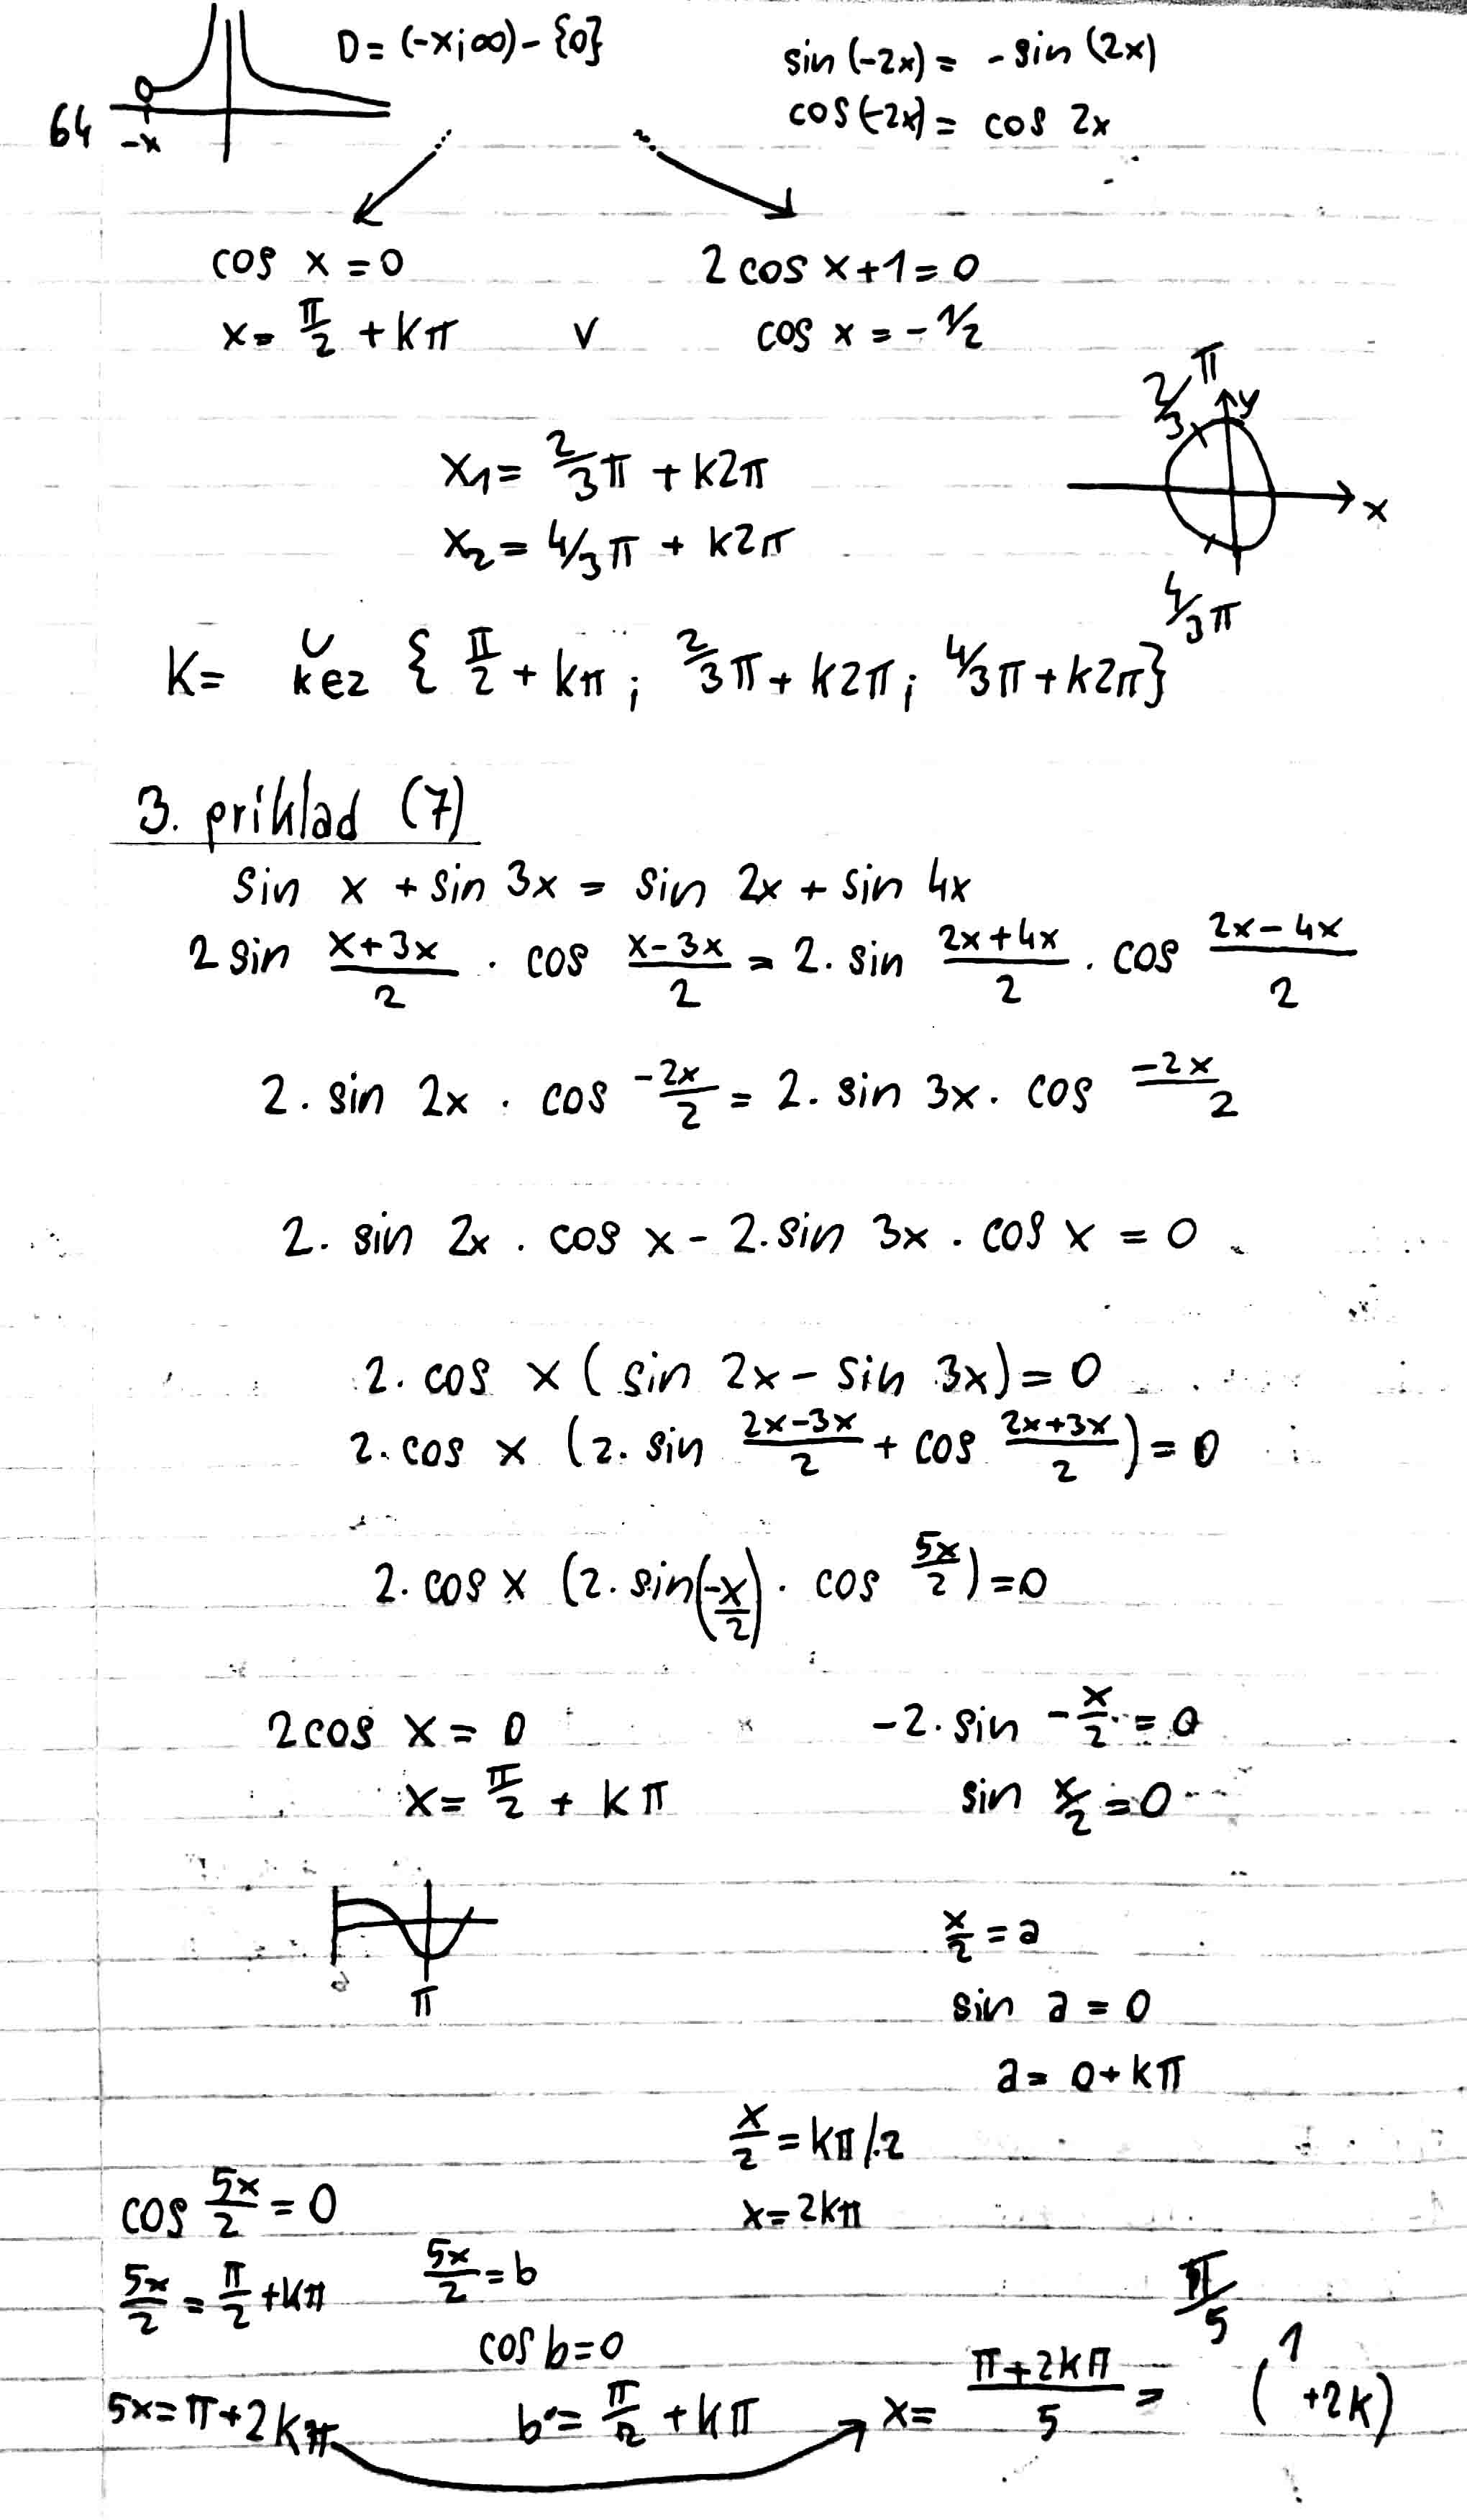 D= (-x;∞) - {0}
sin (-2x) = - sin (2x)
cos (-2x) = cos 2x
64
-x
cos x = 0
2 cos x + 1 = 0
x = π/2 + kπ v cos x = - 1/2
x₁ = 2/3 π + k2π
x₂ = 4/3 π + k2π
2/3 π
y
x
4/3 π
K = ∪ k∈z { π/2 + kπ ; 2/3 π + k2π ; 4/3 π + k2π }
3. príklad (7)
sin x + sin 3x = sin 2x + sin 4x
2 sin (x+3x)/2 . cos (x-3x)/2 = 2. sin (2x+4x)/2 . cos (2x-4x)/2
2. sin 2x . cos -2x/2 = 2. sin 3x . cos -2x/2
2. sin 2x . cos x - 2. sin 3x . cos x = 0
2. cos x ( sin 2x - sin 3x) = 0
2. cos x (2. sin (2x-3x)/2 + cos (2x+3x)/2 ) = 0
2. cos x (2. sin(-x/2) . cos 5x/2 ) = 0
2 cos x = 0
-2. sin - x/2 = 0
x = π/2 + kπ
sin x/2 = 0
π
x/2 = a
sin a = 0
a = 0 + kπ
x/2 = kπ /.2
x = 2kπ
cos 5x/2 = 0
5x/2 = π/2 + kπ
5x/2 = b
cos b = 0
5x = π + 2kπ
b = π/2 + kπ
x = (π + 2kπ)/5 = π/5 (1 + 2k)